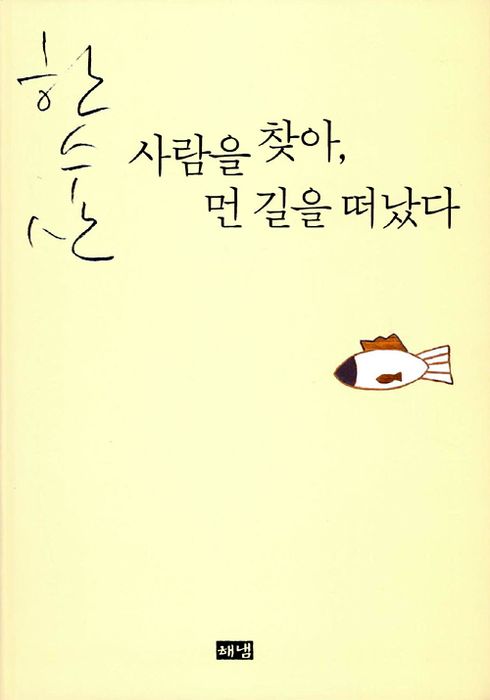 한
수
산
사람을 찾아,
먼 길을 떠났다
해냄